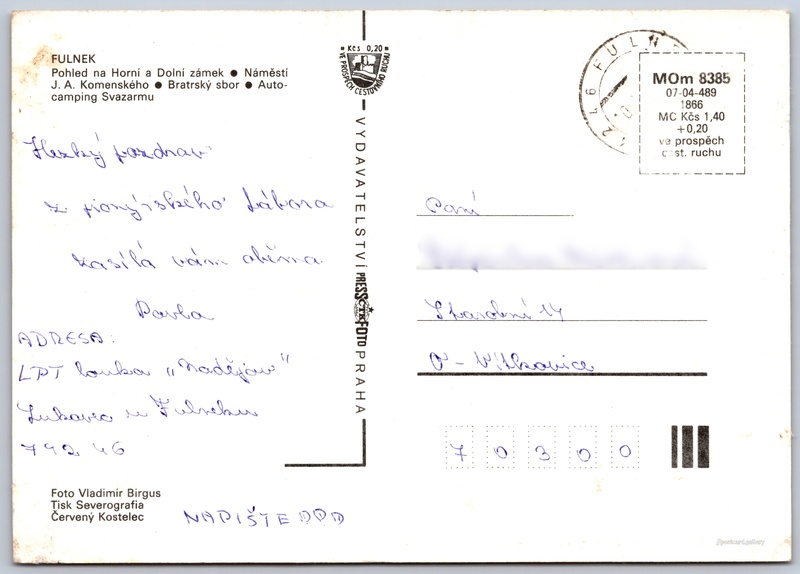 FULNEK
Pohled na Horní a Dolní zámek ● Náměstí
J. A. Komenského ● Bratrský sbor ● Auto-
camping Svazarmu
Kčs 0,20
VE PROSPĚCH CESTOVNÍHO RUCHU
VYDAVATELSTVÍ PRESSFOTO PRAHA
ČTK
246 FULN
MOm 8385
07-04-489
1866
MC Kčs 1,40
+0,20
ve prospěch
cest. ruchu
Hezký pozdrav
z pionýrského tábora
zasílá vám oběma
Pavla
ADRESA:
LPT louka „Nadějov"
Lukavec u Fulneku
742 46
NAPIŠTE
Paní
14
O - Vítkovice
70300
Foto Vladimír Birgus
Tisk Severografia
Červený Kostelec